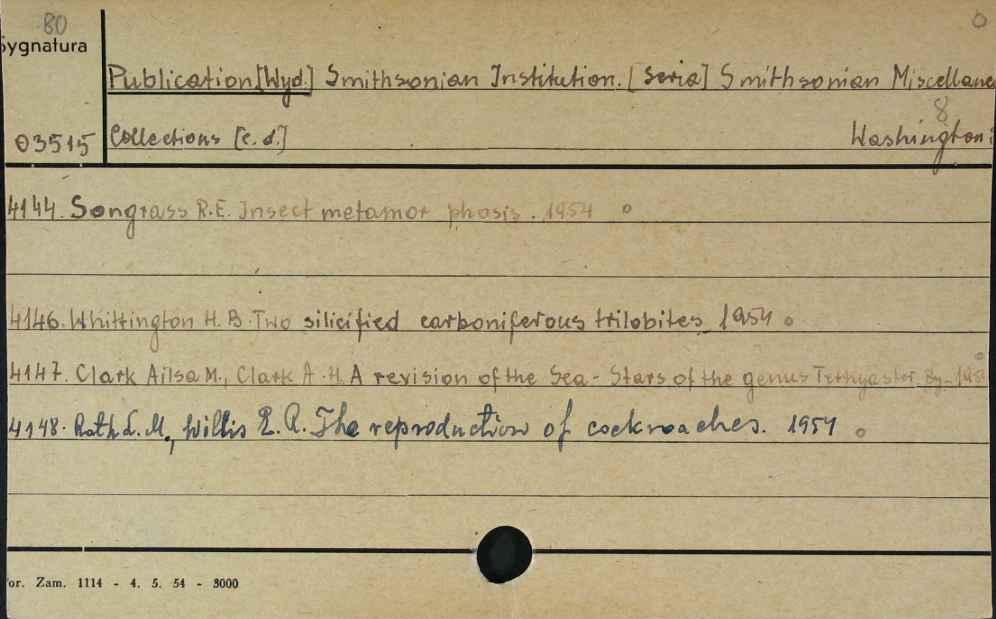 80
Sygnatura
Publication [Wyd.] Smithsonian Institution. [Seria] Smithsonian Miscellane
8
03515 Collections [c.d.] Washington:
4144. Songrass R.E. Insect metamor phosis. 1954
4146. Whittington H. B. Two silicified carboniferous trilobites 1954
4147. Clark Ailsa M., Clark A. H. A revision of the Sea-Stars of the genus Tethyaster. By-
4148. Roth L. M., Willis E. R. The reproduction of cockroaches. 1954
or. Zam. 1114 - 4. 5. 54 - 3000